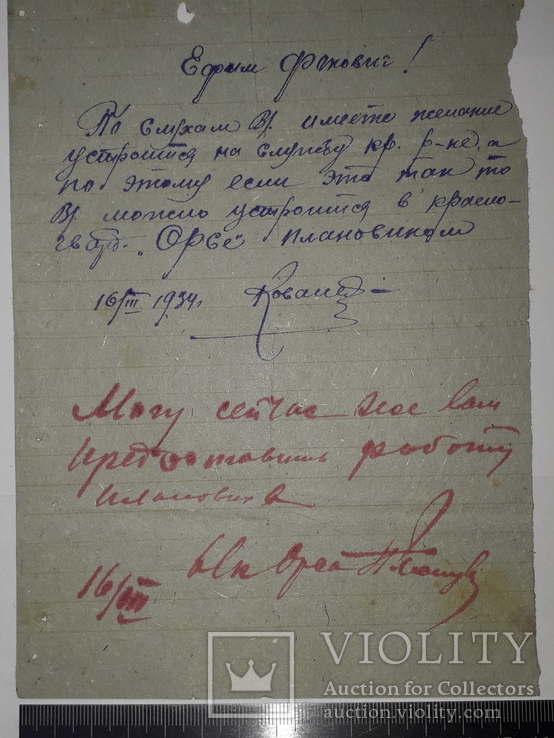 Ефим Фокович!
По слухам Вы имеете желание
устроится на службу кр. р-не, а
по этому если это так то
Вы можно устроится в красно-
гвард. "Орсе" плановиком
16/III 1934г. Ковалев
Могу сейчас же вам
предоставить работу
плановика
16/III Орса
VIOLITY
Auction for Collectors
auction.violity.com